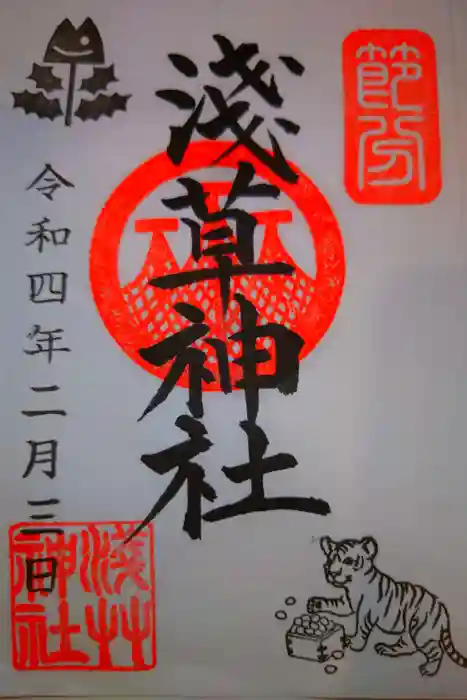 節分
淺草神社
令和四年二月三日
淺草
神社